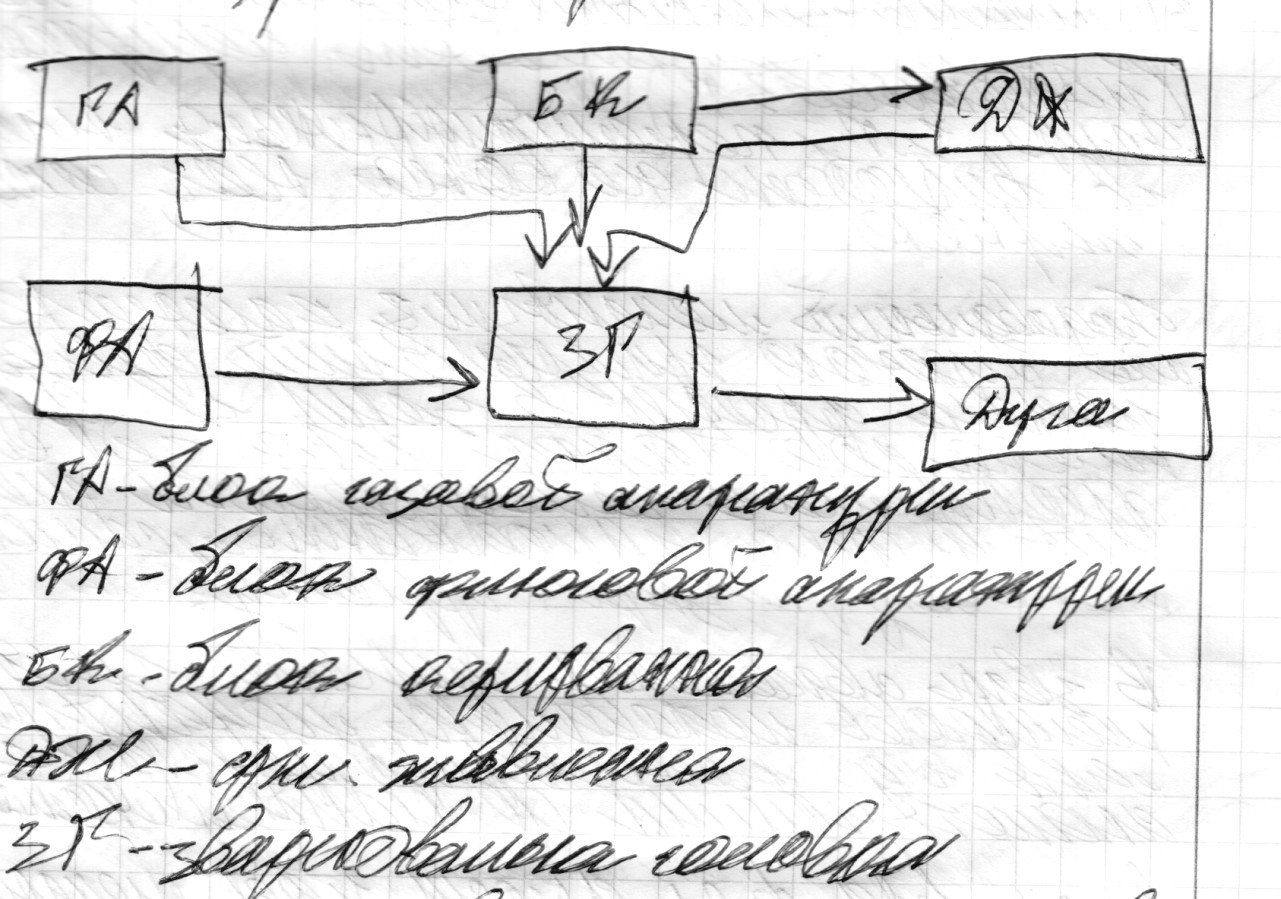 ГА
БК
ДЖ
ФА
ЗГ
Дуга
ГА - блок газової апаратури
ФА - блок флюсової апаратури
БК - блок керування
ДЖ - дж. живлення
ЗГ - зварювальна головка